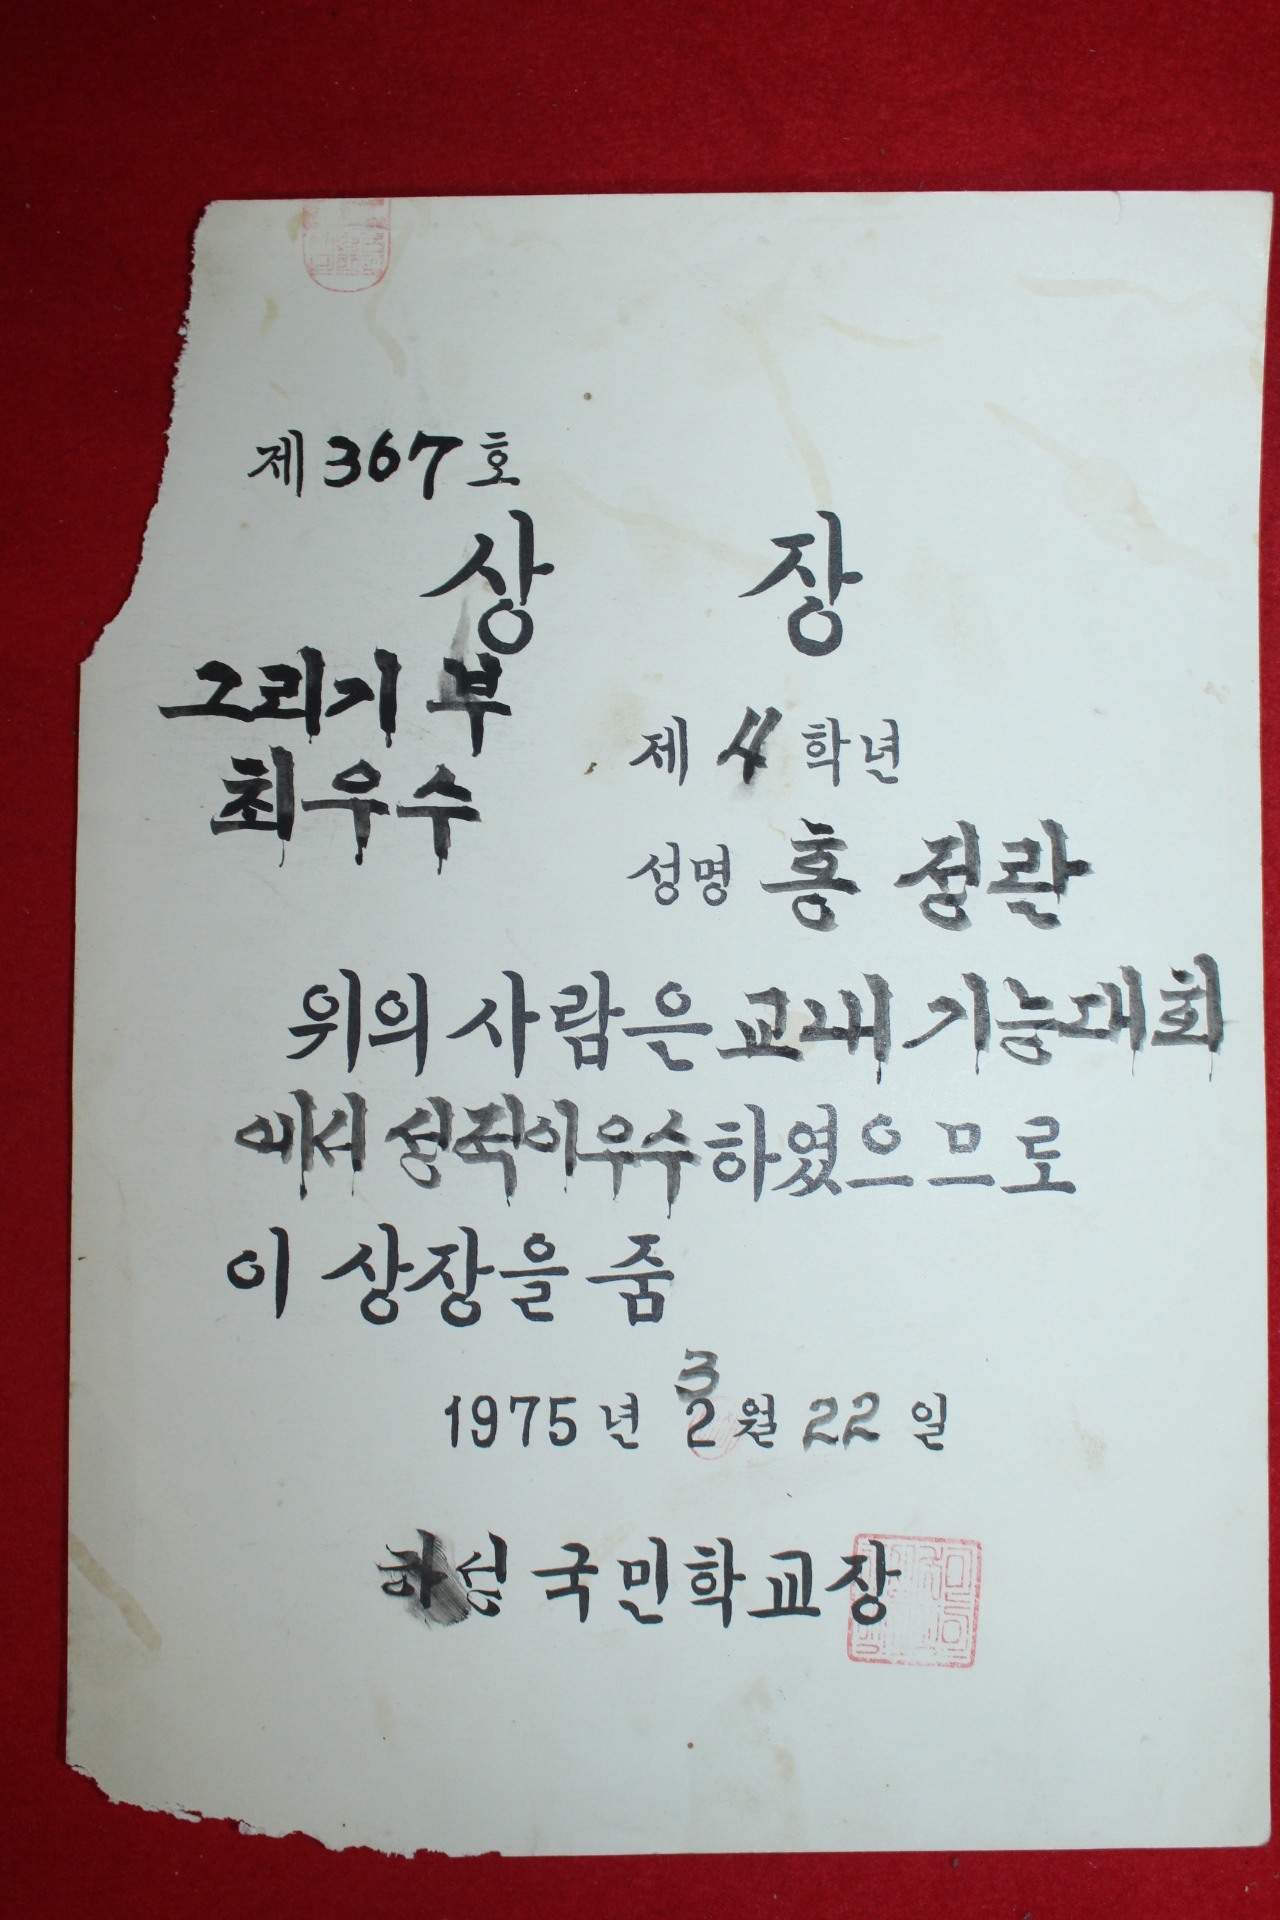 제 367 호
상 장
그리기 부
최우수
제 4 학년
성명 홍 정란
위의 사람은 교내 기능대회
에서 성적이 우수 하였으므로
이 상장을 줌
3
1975 년 2 월 22 일
하성 국민학교장